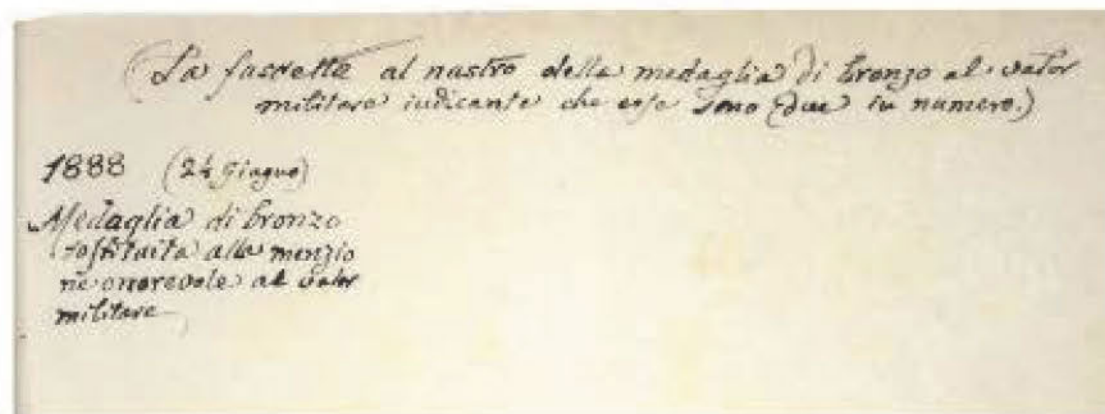 (La fascetta al nastro della medaglia di bronzo al valor
militare indicante che esse sono due in numero.)
1888 (24 Giugno)
Medaglia di bronzo
sostituita alla menzio
ne onorevole al valor
militare